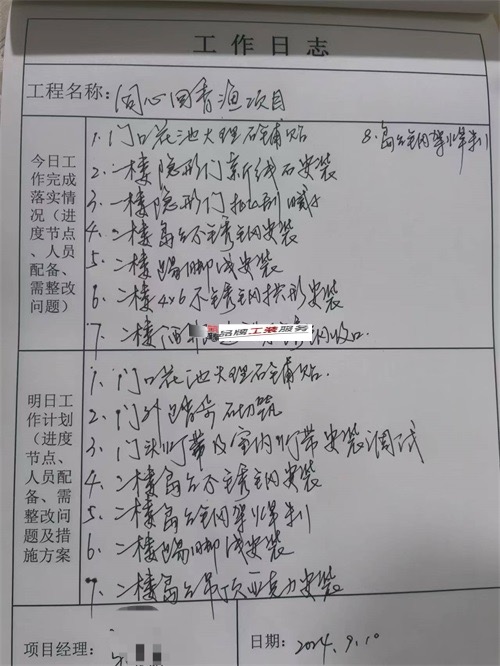 工作日志
工程名称:同心回香渔项目
今日工作完成落实情况(进度节点、人员配备、需整改问题)
1. 门口花池大理石铺贴
2. 二楼隐形门新线石安装
3. 二楼隐形门
4. 二楼岛台不锈钢安装
5. 二楼踢脚线安装
6. 二楼4×6不锈钢拱形安装
7. 二楼 收口.
品牌工装服务
8. 岛台钢架焊制
明日工作计划(进度节点、人员配备、需整改问题及措施方案
1. 门口花池大理石铺贴.
2. 门外 石切筑
3. 门头灯带及室内灯带安装调试
4. 二楼岛台不锈钢安装
5. 二楼岛台钢架焊制
6. 二楼踢脚线安装
7. 二楼岛台吊顶亚克力安装
项目经理:
日期: 2024.9.10